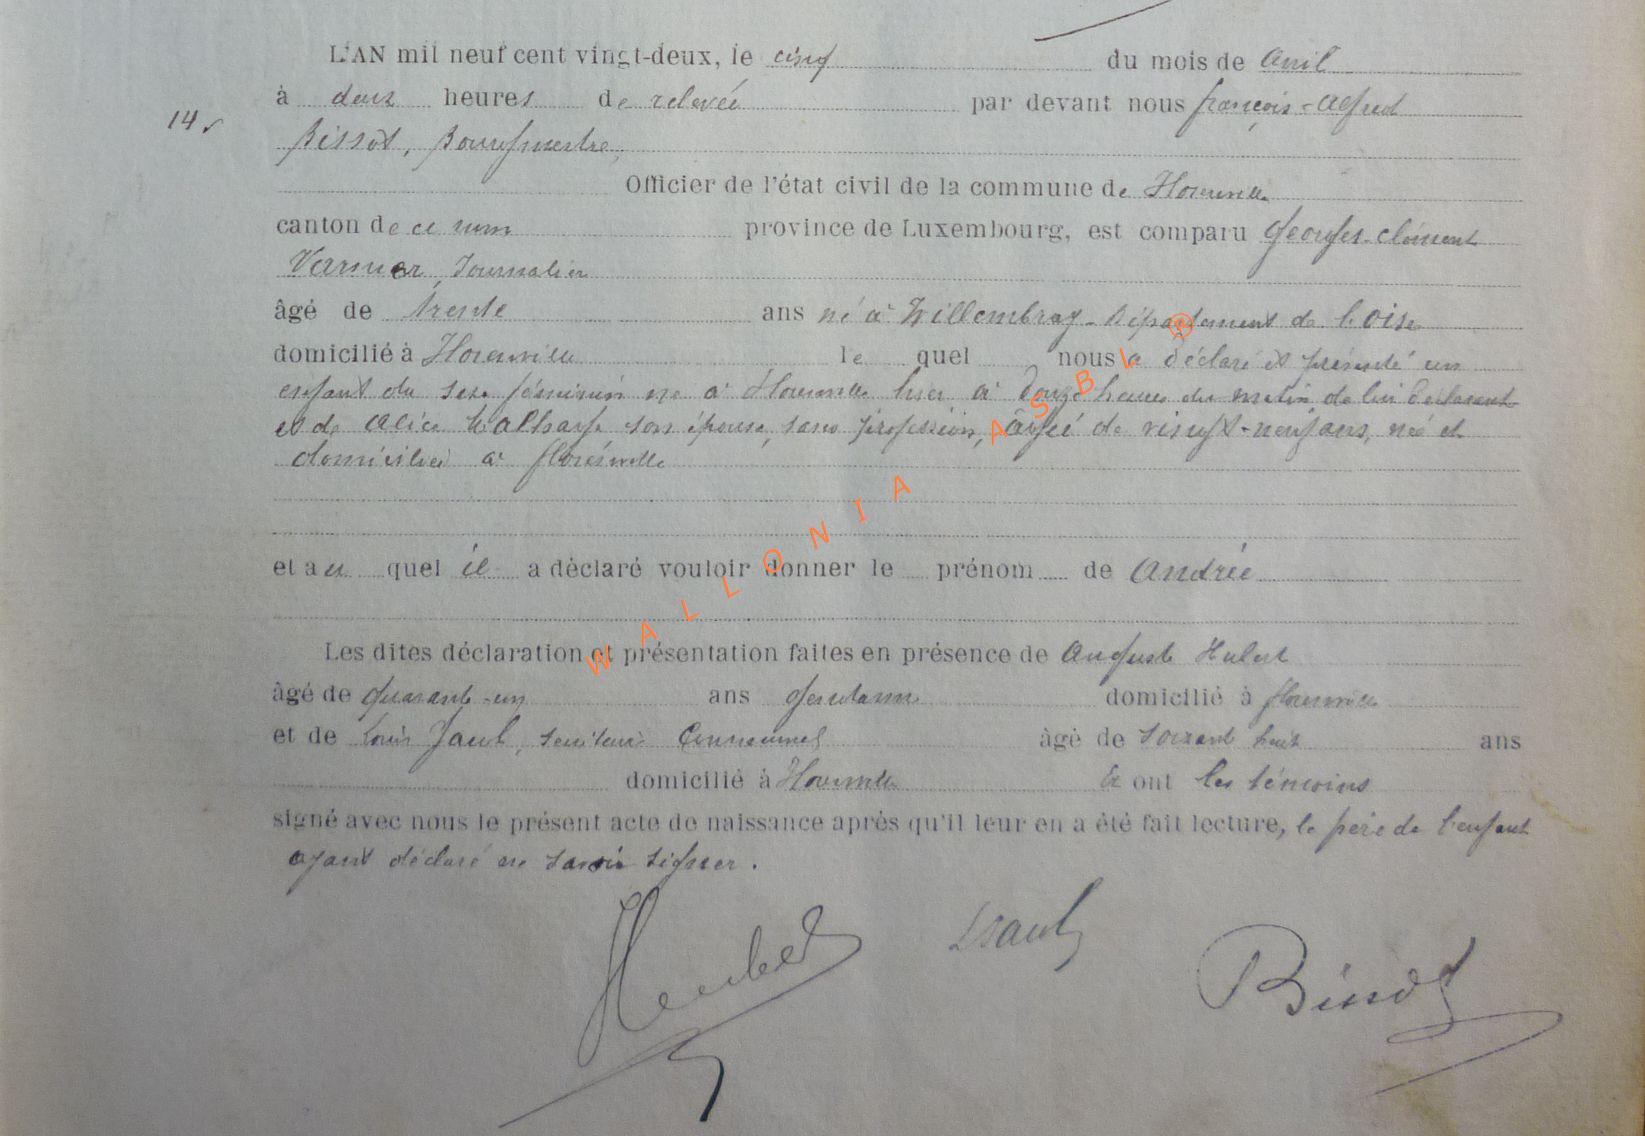 L'AN mil neuf cent vingt-deux, le cinq du mois de avril
à deux heures de relevée par devant nous françois-Alfred
14
Bissot, Bourgmestre,
Officier de l'état civil de la commune de Florenville
canton de ce nom province de Luxembourg, est comparu Georges-Clément
Varnier, Journalier
âgé de trente ans né à Villembray-Département de l'Oise
domicilié à Florenville le quel nous a déclaré et présenté un
enfant du sexe féminin né à Florenville hier à douze heures du matin de lui déclarant
et de Alice son épouse, sans profession, âgée de vingt-neuf ans, née et
domiciliée à florenville
et au quel il a déclaré vouloir donner le prénom de Andrée
Les dites déclaration et présentation faites en présence de Auguste Hubert
âgé de quarante-un ans Gendarme domicilié à florenville
et de Louis Jaul, âgé de soixante huit ans
domicilié à Florenville Et ont les témoins
signé avec nous le présent acte de naissance après qu'il leur en a été fait lecture, le père de l'enfant
ayant déclaré ne savoir signer.
Hubert
LJaul
Bissot
WALLONIA ASBL ®